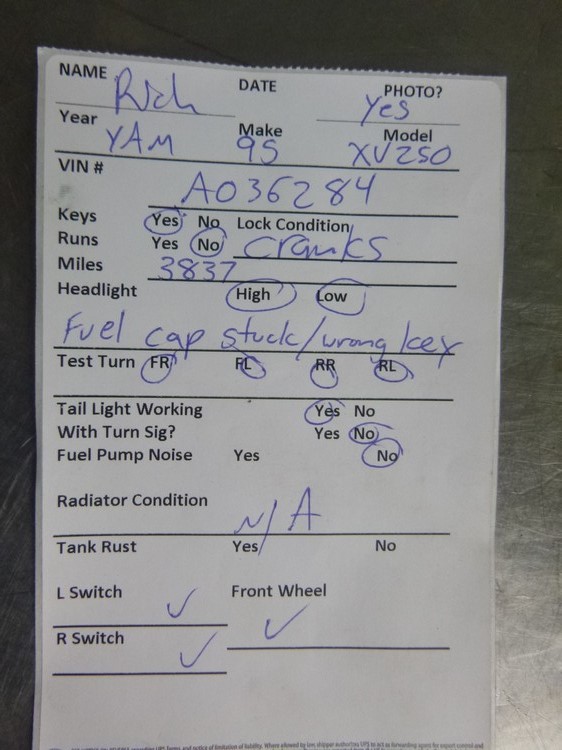 NAME Rich DATE PHOTO? Yes
Year YAM Make 95 Model XV250
VIN # A036284
Keys Yes No Lock Condition
Runs Yes No Cranks
Miles 3837
Headlight High Low
Fuel cap stuck/wrong key
Test Turn FR RL RR RL
Tail Light Working Yes No
With Turn Sig? Yes No
Fuel Pump Noise Yes No
Radiator Condition N/A
Tank Rust Yes No
L Switch ✓ Front Wheel ✓
R Switch ✓